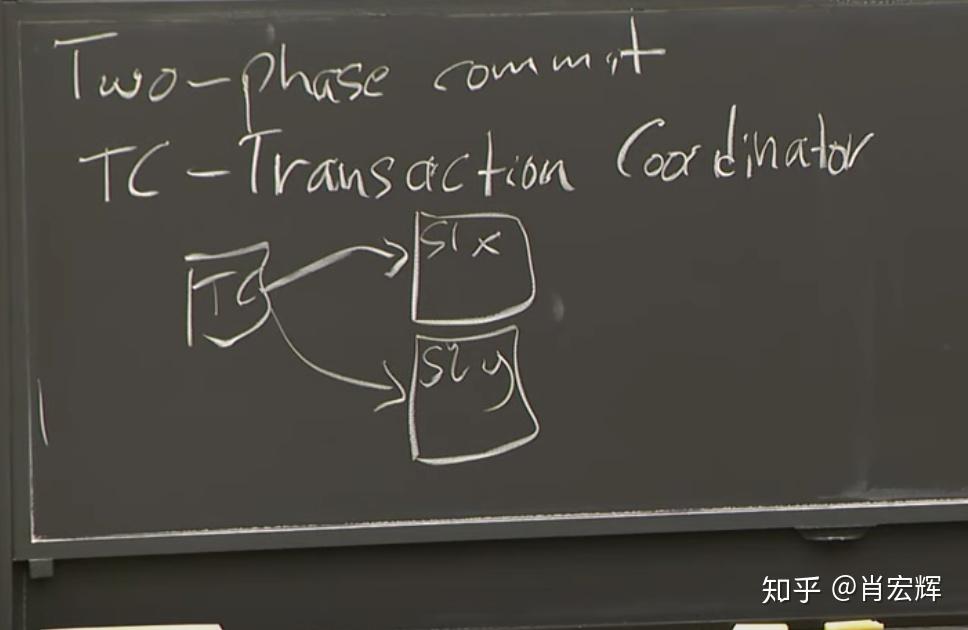 Two-phase commit
TC-Transaction Coordinator
TC
S1 x
S2 y
知乎 @肖宏辉